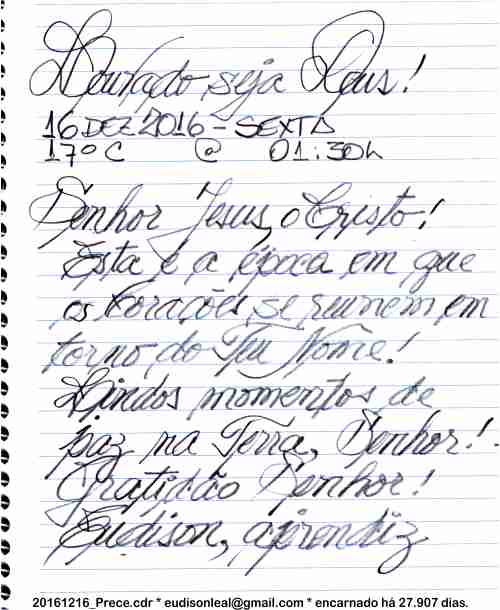 Louvado seja Deus!
16 DEZ 2016 - SEXTA
17º C @ 01:30h
Senhor Jesus, o Cristo!
Esta é a época em que
os Corações se reúnem em
torno do Teu Nome!
Lindos momentos de
paz na Terra, Senhor!
Gratidão Senhor!
Eudison, aprendiz
20161216_Prece.cdr * eudisonleal@gmail.com * encarnado há 27.907 dias.